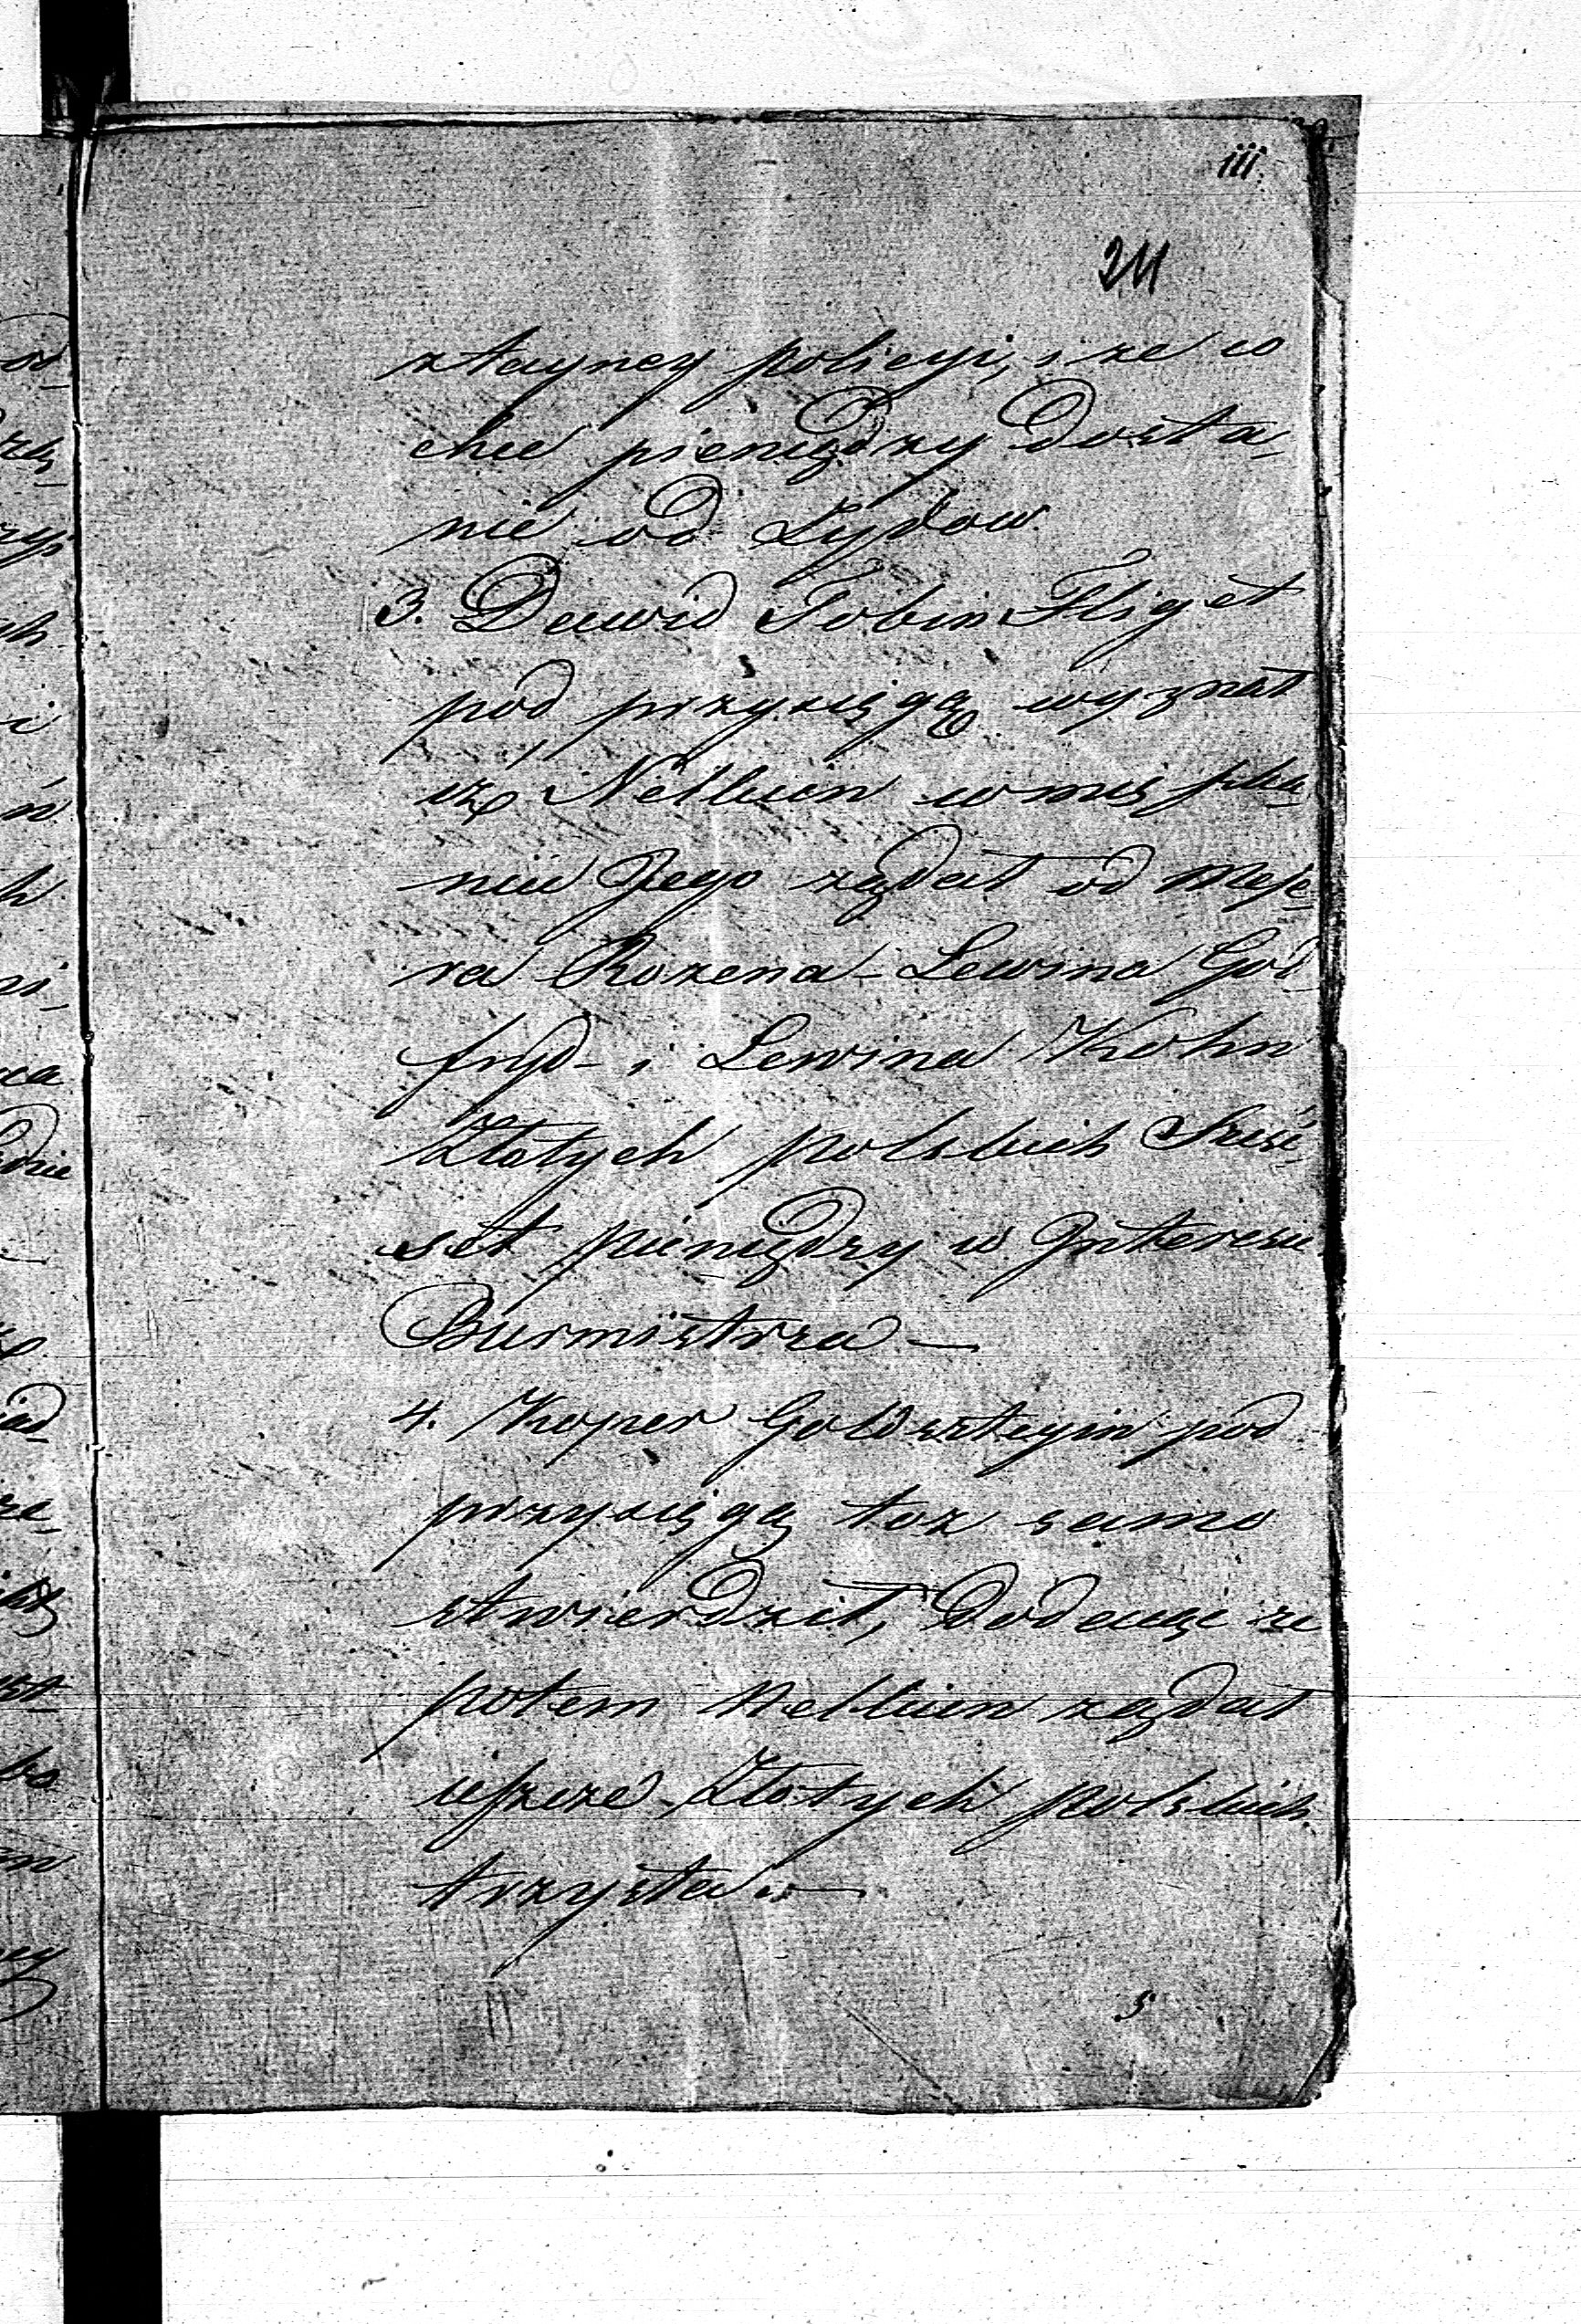 iii.
211
z tayney policyi, i ze w
chce pieniędzy Dosta-
nie od Zydow
3. Dawid Tobin Fligel
pod przysięgą wyznał
iz Nelken w mieszka-
niu Jego ządał od Maje-
ra Rozena - Lewina God
fryd - i Lewina Kohn
Złotych polskich Sześć-
set pieniędzy w Interesie
Burmistrza —
4. Koper Goldsztejn pod
przysięgą toz samo
stwierdził, Dodaiąc ze
potem Nelken ządał
ieszcze - Złotych polskich
trzysta —
5